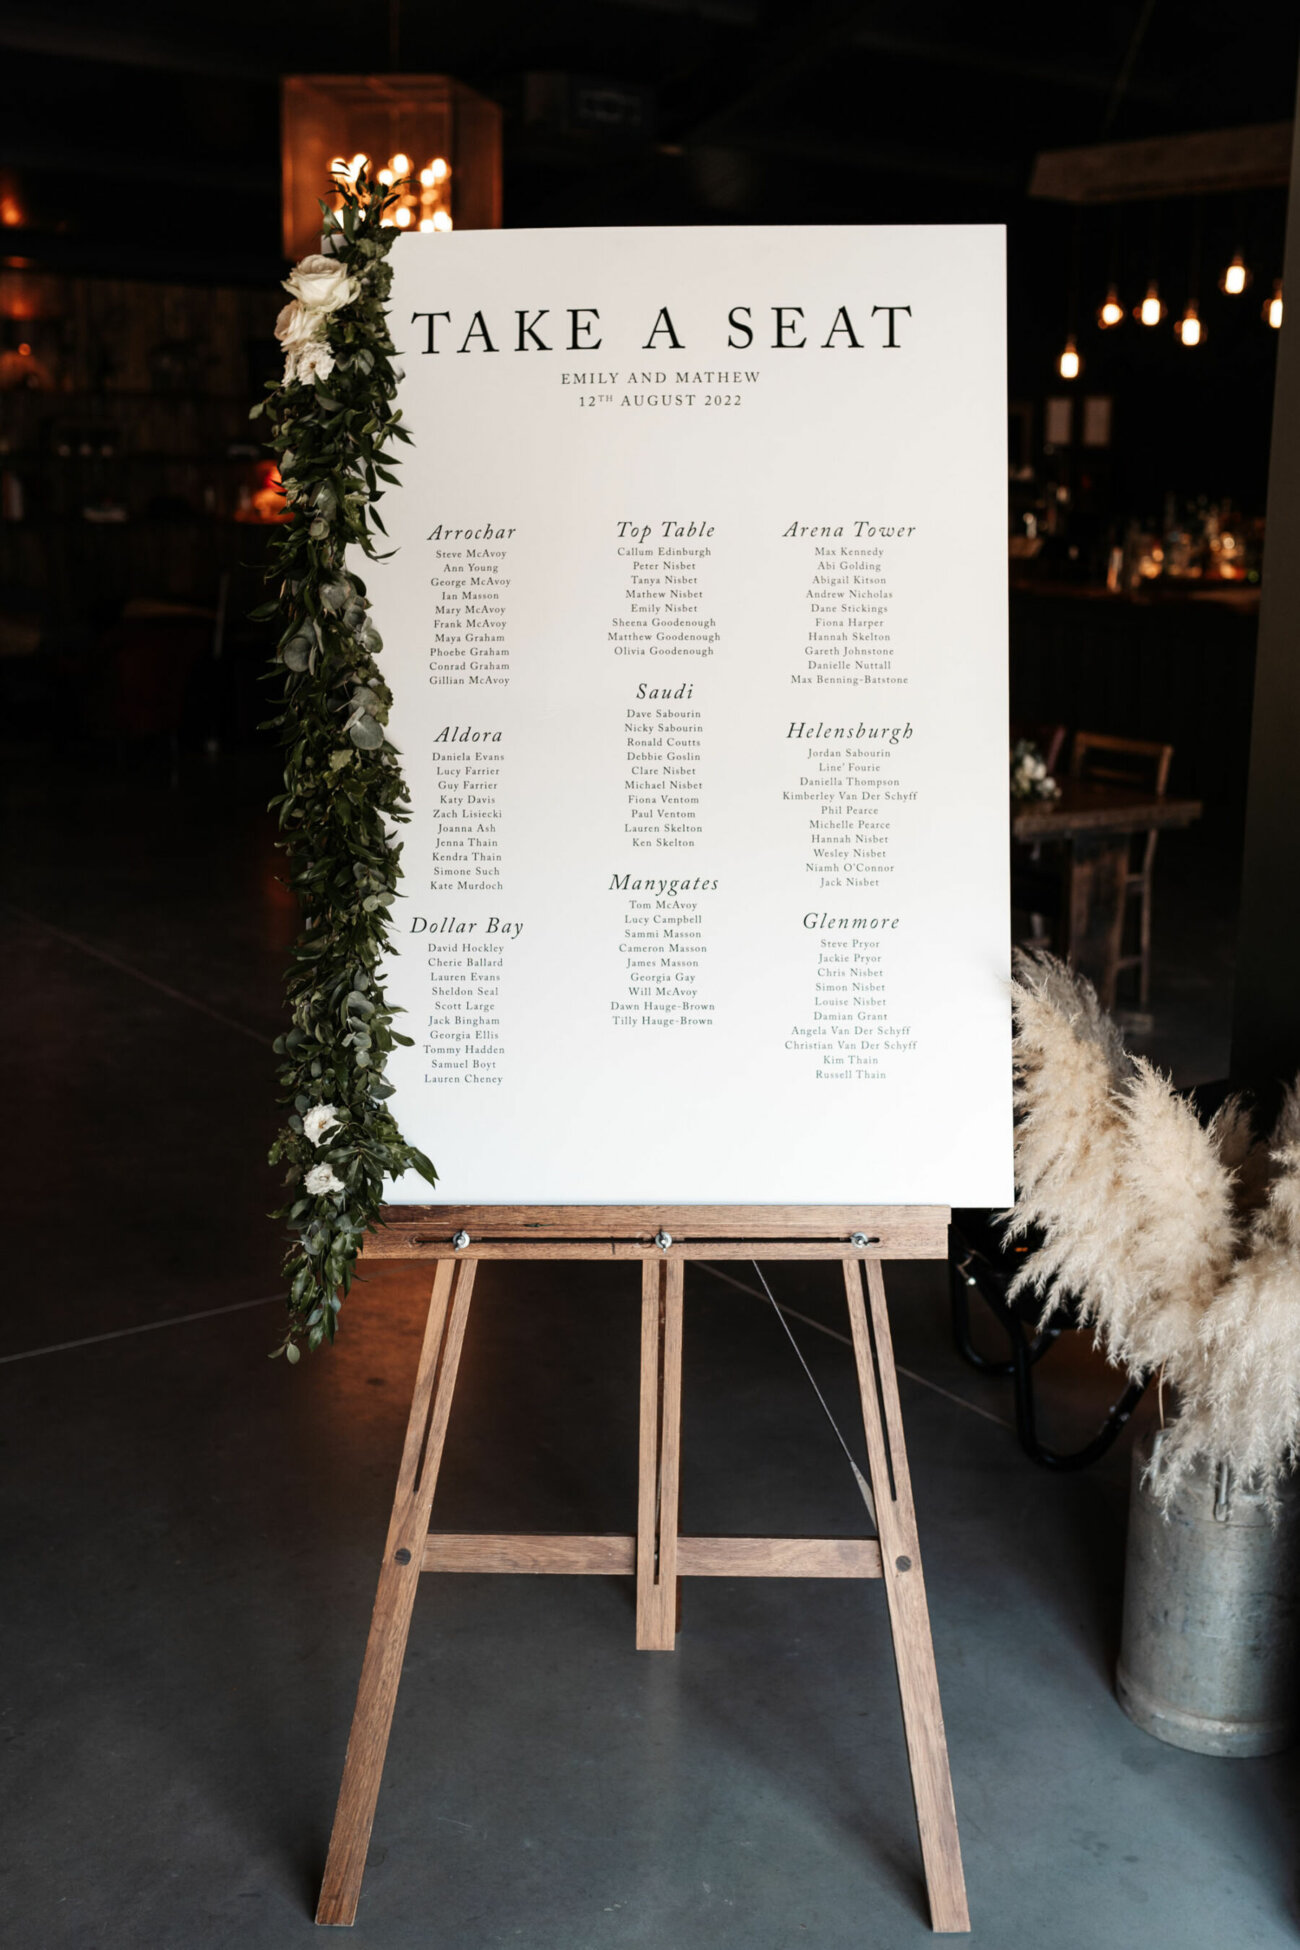 TAKE A SEAT
EMILY AND MATHEW
12TH AUGUST 2022
Arrochar
Steve McAvoy
Ann Young
George McAvoy
Ian Masson
Mary McAvoy
Frank McAvoy
Maya Graham
Phoebe Graham
Conrad Graham
Gillian McAvoy
Aldora
Daniela Evans
Lucy Farrier
Guy Farrier
Katy Davis
Zach Lisiecki
Joanna Ash
Jenna Thain
Kendra Thain
Simone Such
Kate Murdoch
Dollar Bay
David Hockley
Cherie Ballard
Lauren Evans
Sheldon Seal
Scott Large
Jack Bingham
Georgia Ellis
Tommy Hadden
Samuel Boyt
Lauren Cheney
Top Table
Callum Edinburgh
Peter Nisbet
Tanya Nisbet
Mathew Nisbet
Emily Nisbet
Sheena Goodenough
Matthew Goodenough
Olivia Goodenough
Saudi
Dave Sabourin
Nicky Sabourin
Ronald Coutts
Debbie Goslin
Clare Nisbet
Michael Nisbet
Fiona Ventom
Paul Ventom
Lauren Skelton
Ken Skelton
Manygates
Tom McAvoy
Lucy Campbell
Sammi Masson
Cameron Masson
James Masson
Georgia Gay
Will McAvoy
Dawn Hauge-Brown
Tilly Hauge-Brown
Arena Tower
Max Kennedy
Abi Golding
Abigail Kitson
Andrew Nicholas
Dane Stickings
Fiona Harper
Hannah Skelton
Gareth Johnstone
Danielle Nuttall
Max Benning-Batstone
Helensburgh
Jordan Sabourin
Line' Fourie
Daniella Thompson
Kimberley Van Der Schyff
Phil Pearce
Michelle Pearce
Hannah Nisbet
Wesley Nisbet
Niamh O'Connor
Jack Nisbet
Glenmore
Steve Pryor
Jackie Pryor
Chris Nisbet
Simon Nisbet
Louise Nisbet
Damian Grant
Angela Van Der Schyff
Christian Van Der Schyff
Kim Thain
Russell Thain